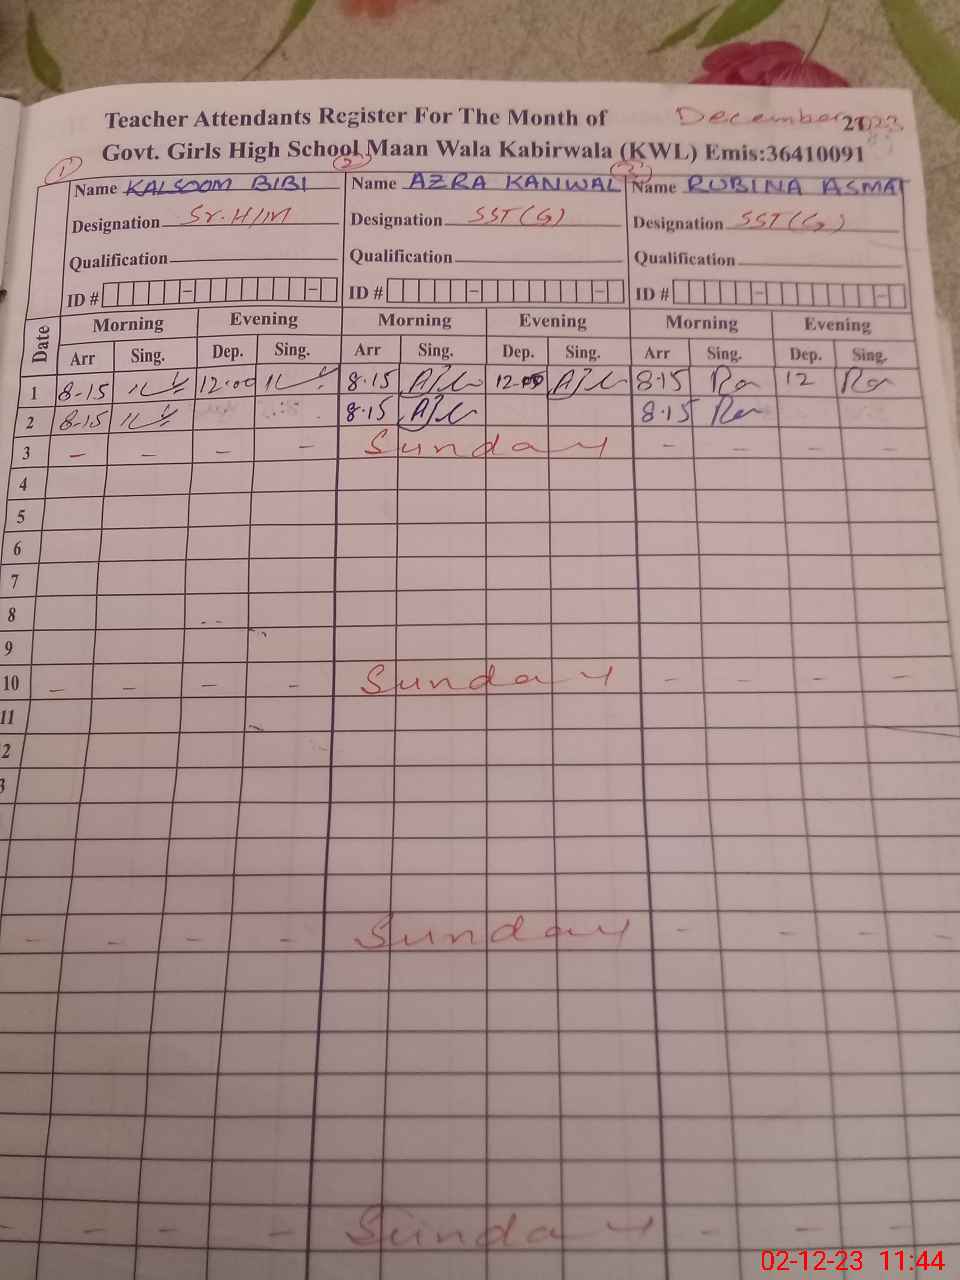 Teacher Attendants Register For The Month of December 2023
Govt. Girls High School Maan Wala Kabirwala (KWL) Emis:36410091
1 2 3
Name KALSOOM BIBI Name AZRA KANWAL Name RUBINA ASMAT
Designation Sr. H/M Designation SST (G) Designation SST (G)
Qualification Qualification Qualification
ID # ID # ID #
Date Morning Evening Morning Evening Morning Evening
Arr Sing. Dep. Sing. Arr Sing. Dep. Sing. Arr Sing. Dep. Sing.
1 8-15 12.00 8.15 12.00 8.15 12
2 8-15 8.15 8.15
3 – – – – Sunday – – – –
4
5
6
7
8
9
10 – – – – Sunday – – – –
11
2
3
– – – – Sunday – – – –
– – – – Sunday – – – –
02-12-23 11:44